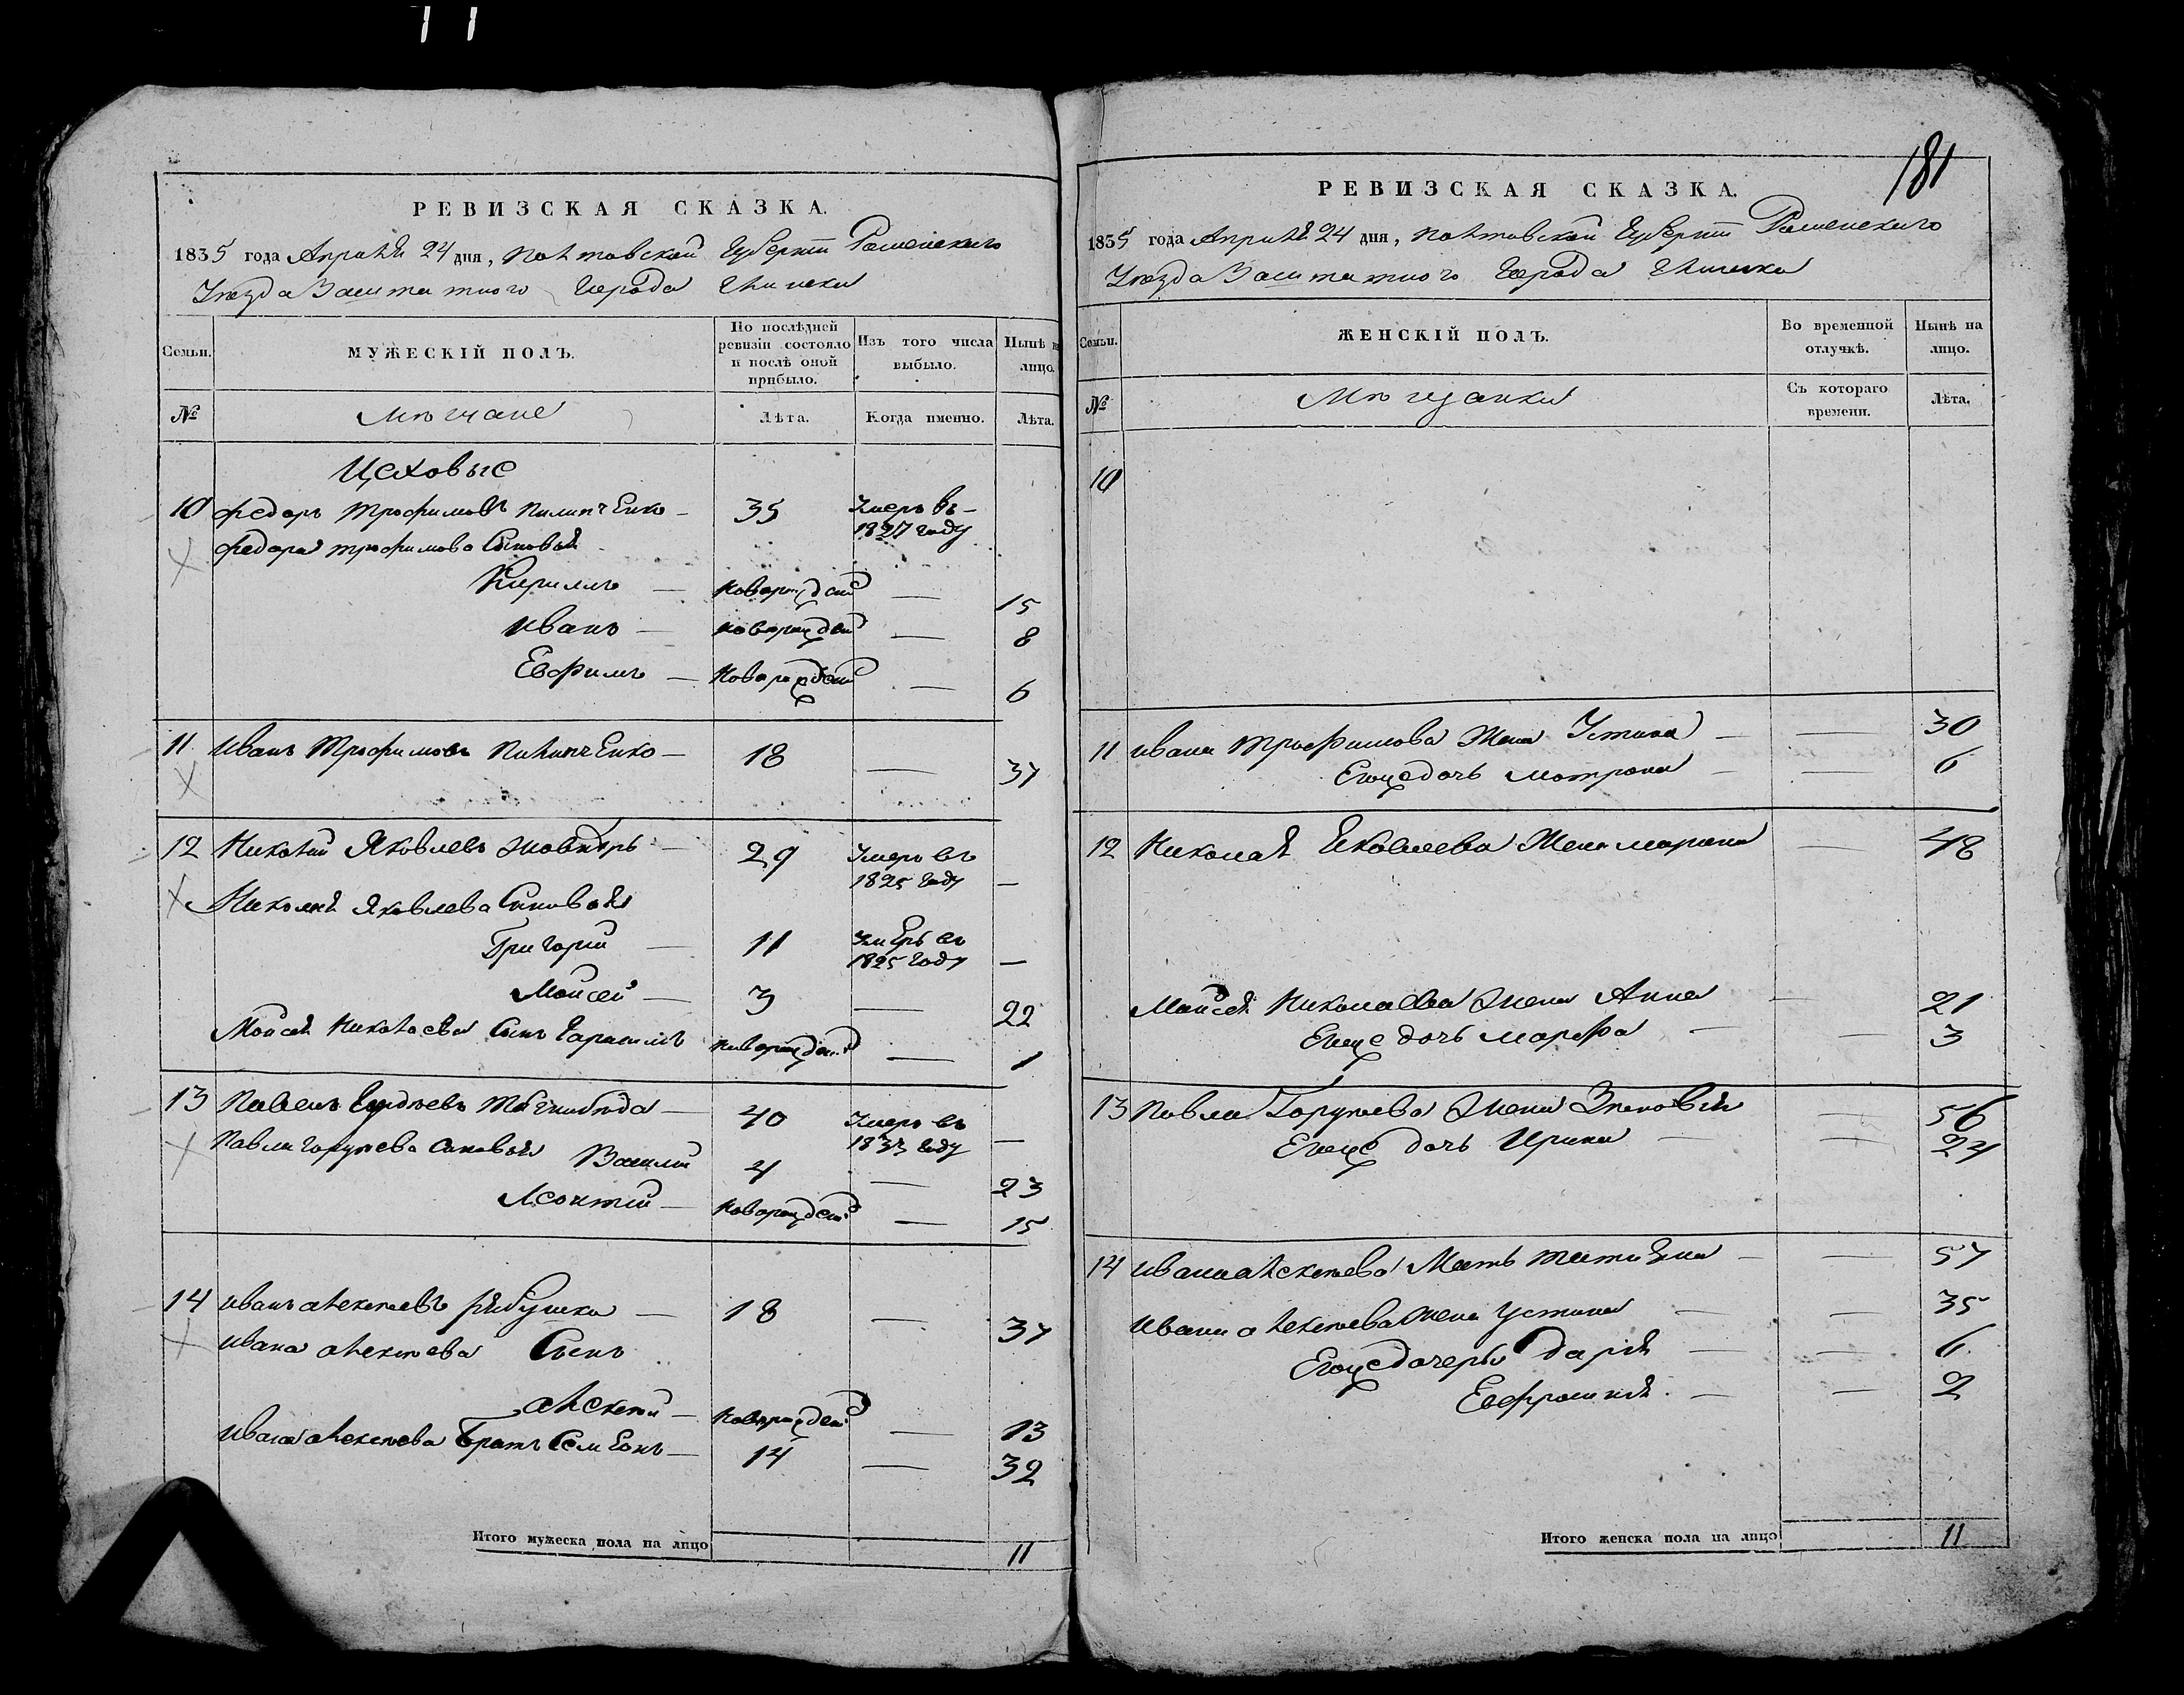 РЕВИЗСКАЯ СКАЗКА.
1835 года Апреля 24 дня, Полтавской Губернии Роменского
Уезда Заштатного Города Глинска
Семьи.
МУЖЕСКІЙ ПОЛЪ.
По послѣдней ревизіи состояло и послѣ оной прибыло.
Изъ того числа выбыло.
Нынѣ на лицо.
№
Мѣщане
Лѣта.
Когда именно.
Лѣта.
Цеховые
10 Федоръ Трофимовъ Пилипченко — 35 Умеръ въ — 1827 году
Федора Трофимова Сыновья
Кирилъ — новорожден — 15
Иванъ — новорожден — 8
Евфимъ — новорожден — 6
11 Иванъ Трофимовъ Пилипченко — 18 — 37
12 Николай Яковлевъ — 29 Умеръ въ 1825 году —
Николая Яковлева Сыновья
Григорий — 11 Умеръ въ 1825 году —
Моисей — 3 — 22
Моисея Николаева Сынъ Герасимъ новорожден — 1
13 Павелъ Гордѣевъ — 40 Умеръ въ году —
Павла Гордѣева Сыновья Василий 4 — 23
Леонтий — новорожден — 15
14 Иванъ Алексѣевъ Рябушка — 18 — 37
Ивана Алексѣева Сынъ
Алексѣй — новорожден — 13
Ивана Алексѣева Братъ Семенъ — 14 — 32
Итого мужеска пола на лицо 11
181
РЕВИЗСКАЯ СКАЗКА.
1835 года Апреля 24 дня, Полтавской Губернии Роменского
Уезда Заштатного Города Глинска
Семьи.
ЖЕНСКІЙ ПОЛЪ.
Во временной отлучкѣ.
Нынѣ на лицо.
№
Мѣщанки
Съ котораго времени.
Лѣта.
10
11 Ивана Трофимова Жена Устина — — 30
Егоже дочь Мотрона — — 6
12 Николая Яковлева Жена Марина — 48
Моисея Николаева Жена Анна — 21
Егоже дочь Марфа — — 3
13 Павла Гордѣева Жена Зеновия — 56
Егоже дочь Ирина — — 24
14 Ивана Алексѣева Мать Татияна — — 57
Ивана Алексѣева Жена Устина — — 35
Егоже дочери Дария — — 6
Ефросиния — — 2
Итого женска пола на лицо 11